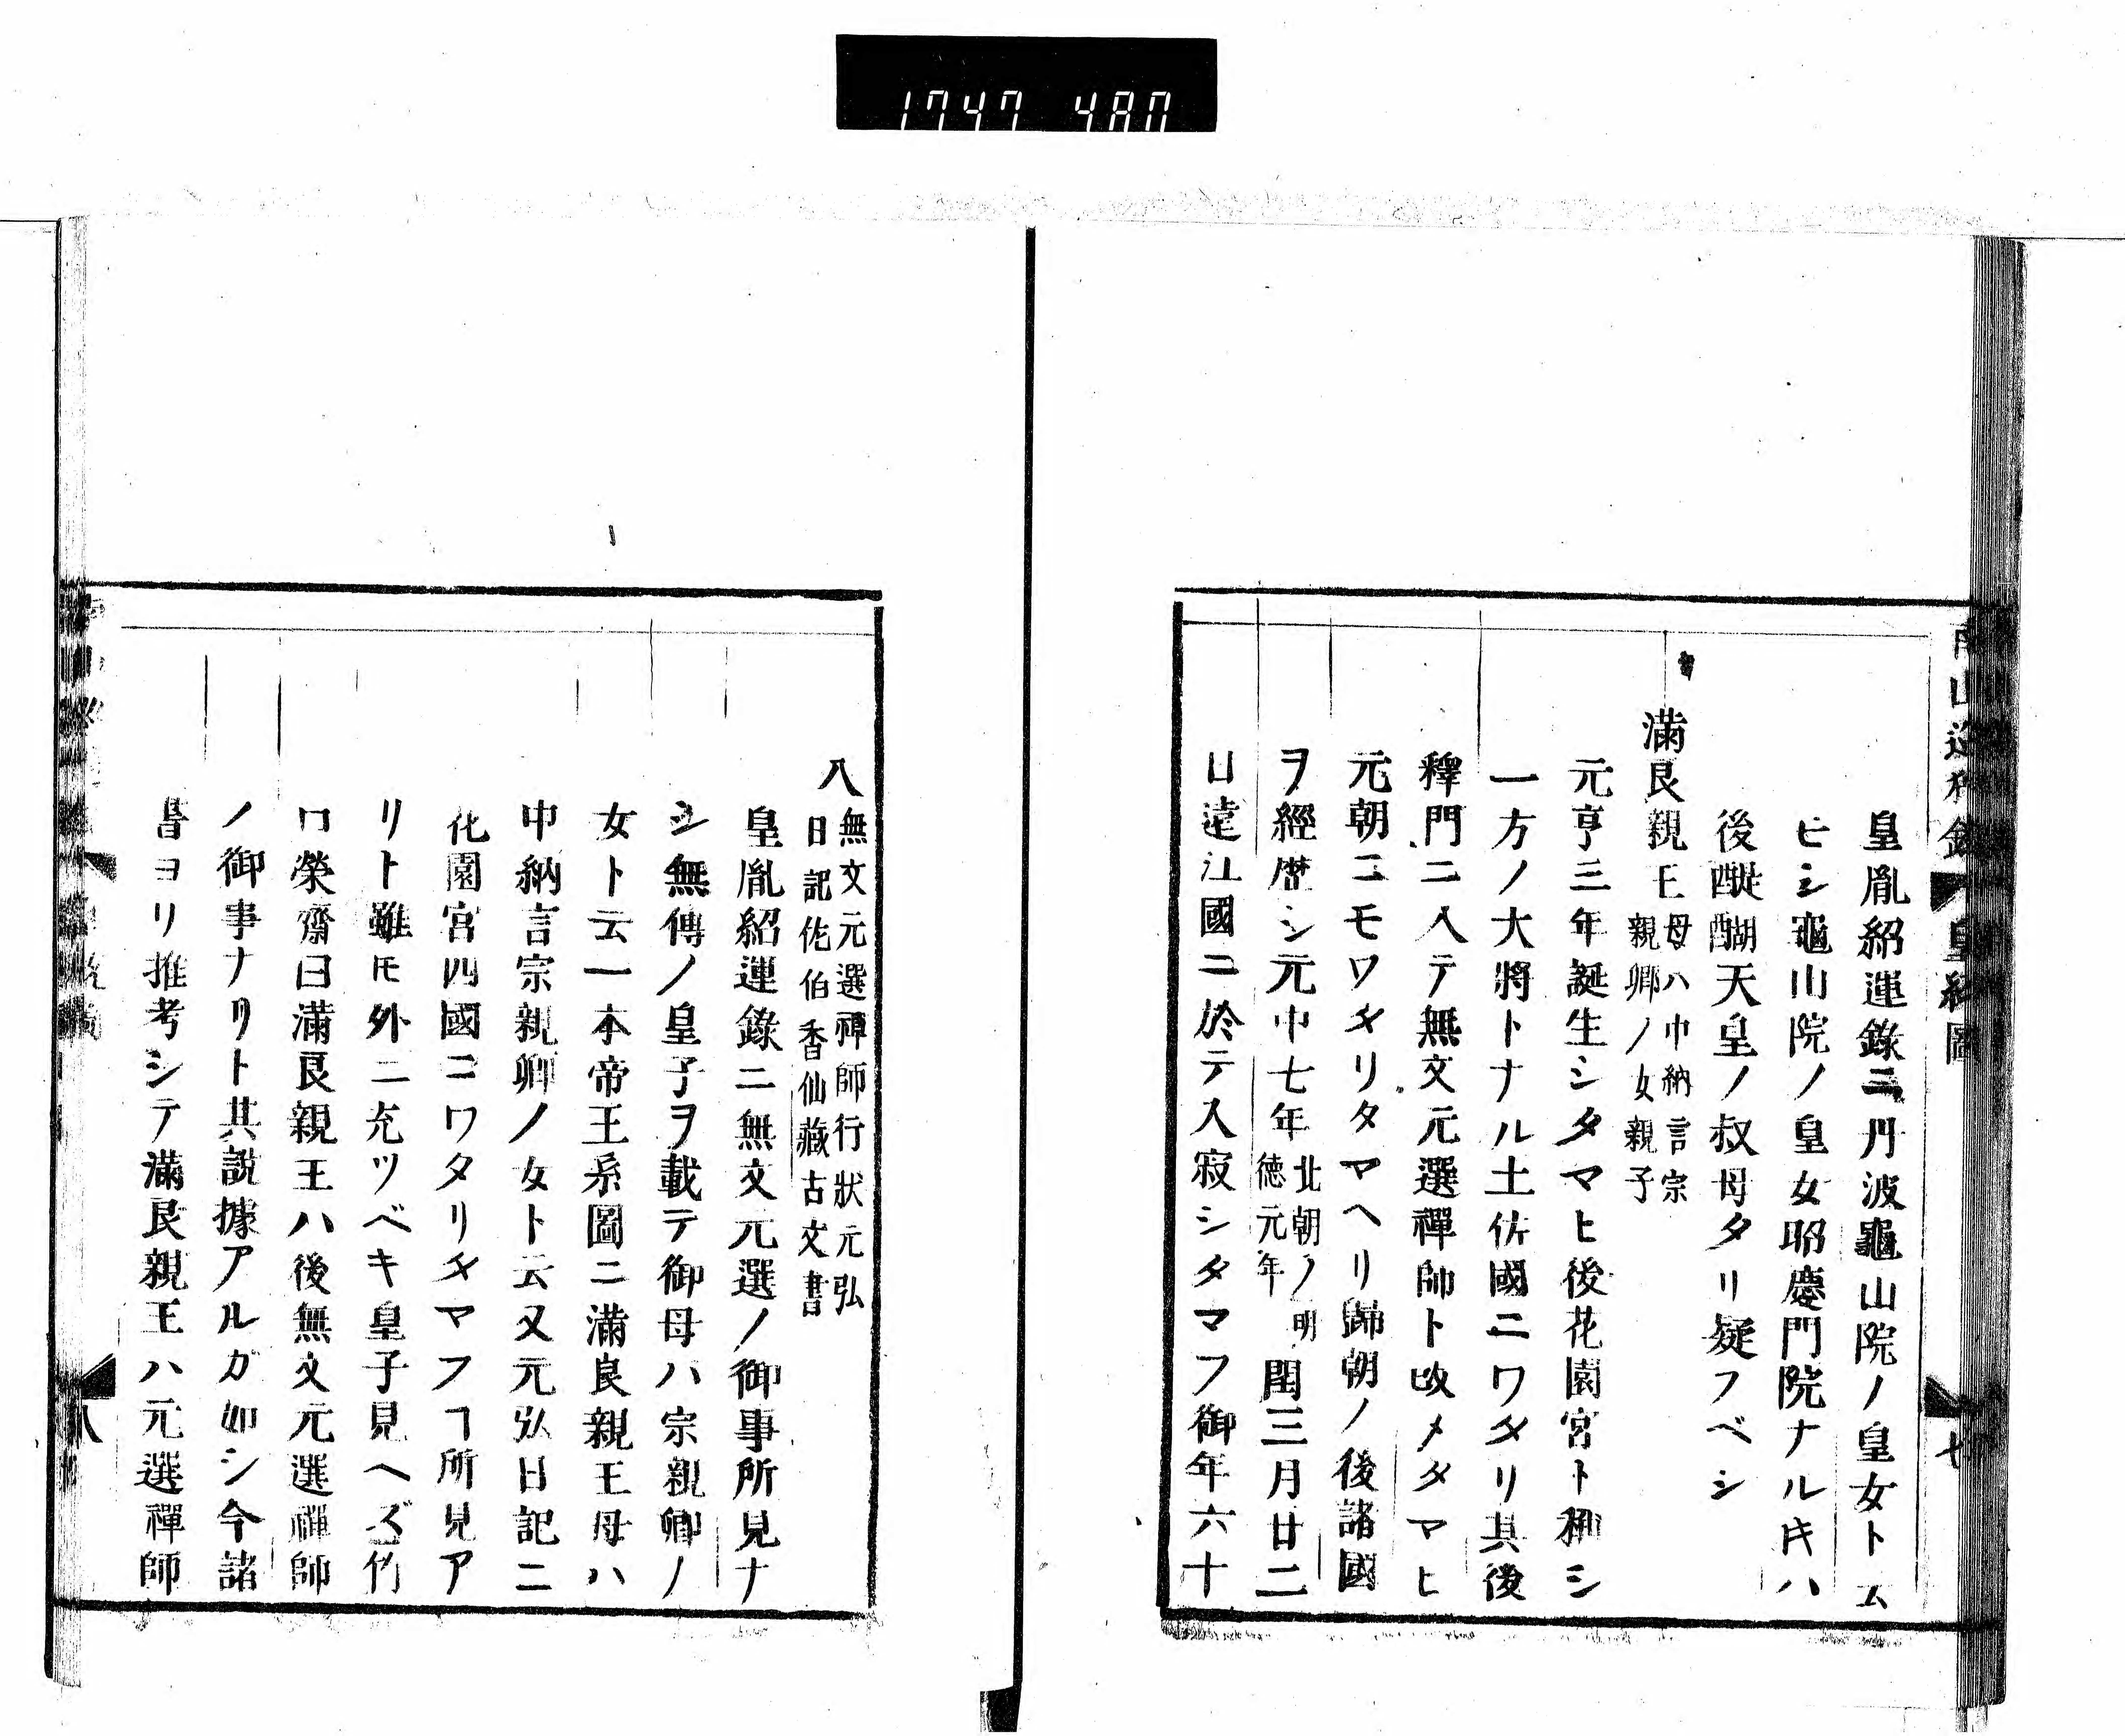 1747 480
皇胤紹運錄ニ丹波龜山院ノ皇女トム
ヒシ龜山院ノ皇女昭慶門院ナル㐧ハ
後醍醐天皇ノ叔母タリ疑フベシ
滿良親王
母ハ中納言宗
親卿ノ女親子
元亨三年誕生シタマヒ後花園宮ト稱シ
一方ノ大將トナル土佐國ニワタリ其後
釋門ニ入テ無文元選禪師ト改メタマヒ
元朝ニモワタリタマヘリ歸朝ノ後諸國
ヲ經歷シ元中七年
北朝ノ明
徳元年
閏三月廿二
日遠江國ニ於テ入寂シタマフ御年六十
八
無文元選禪師行狀元弘
日記佐伯香仙藏古文書
皇胤紹運錄ニ無文元選ノ御事所見ナ
シ無傳ノ皇子ヲ載テ御母ハ宗親卿ノ
女ト云一本帝王系圖ニ滿良親王母ハ
中納言宗親卿ノ女ト云又元弘日記ニ
花園宮四國ニワタリタマフヿ所見ア
リト雖𪜈外ニ充ツベキ皇子見ヘズ竹
口榮齋曰滿良親王ハ後無文元選禪師
ノ御事ナリト其說據アルガ如シ今諸
書ヨリ推考シテ滿良親王ハ元選禪師
八